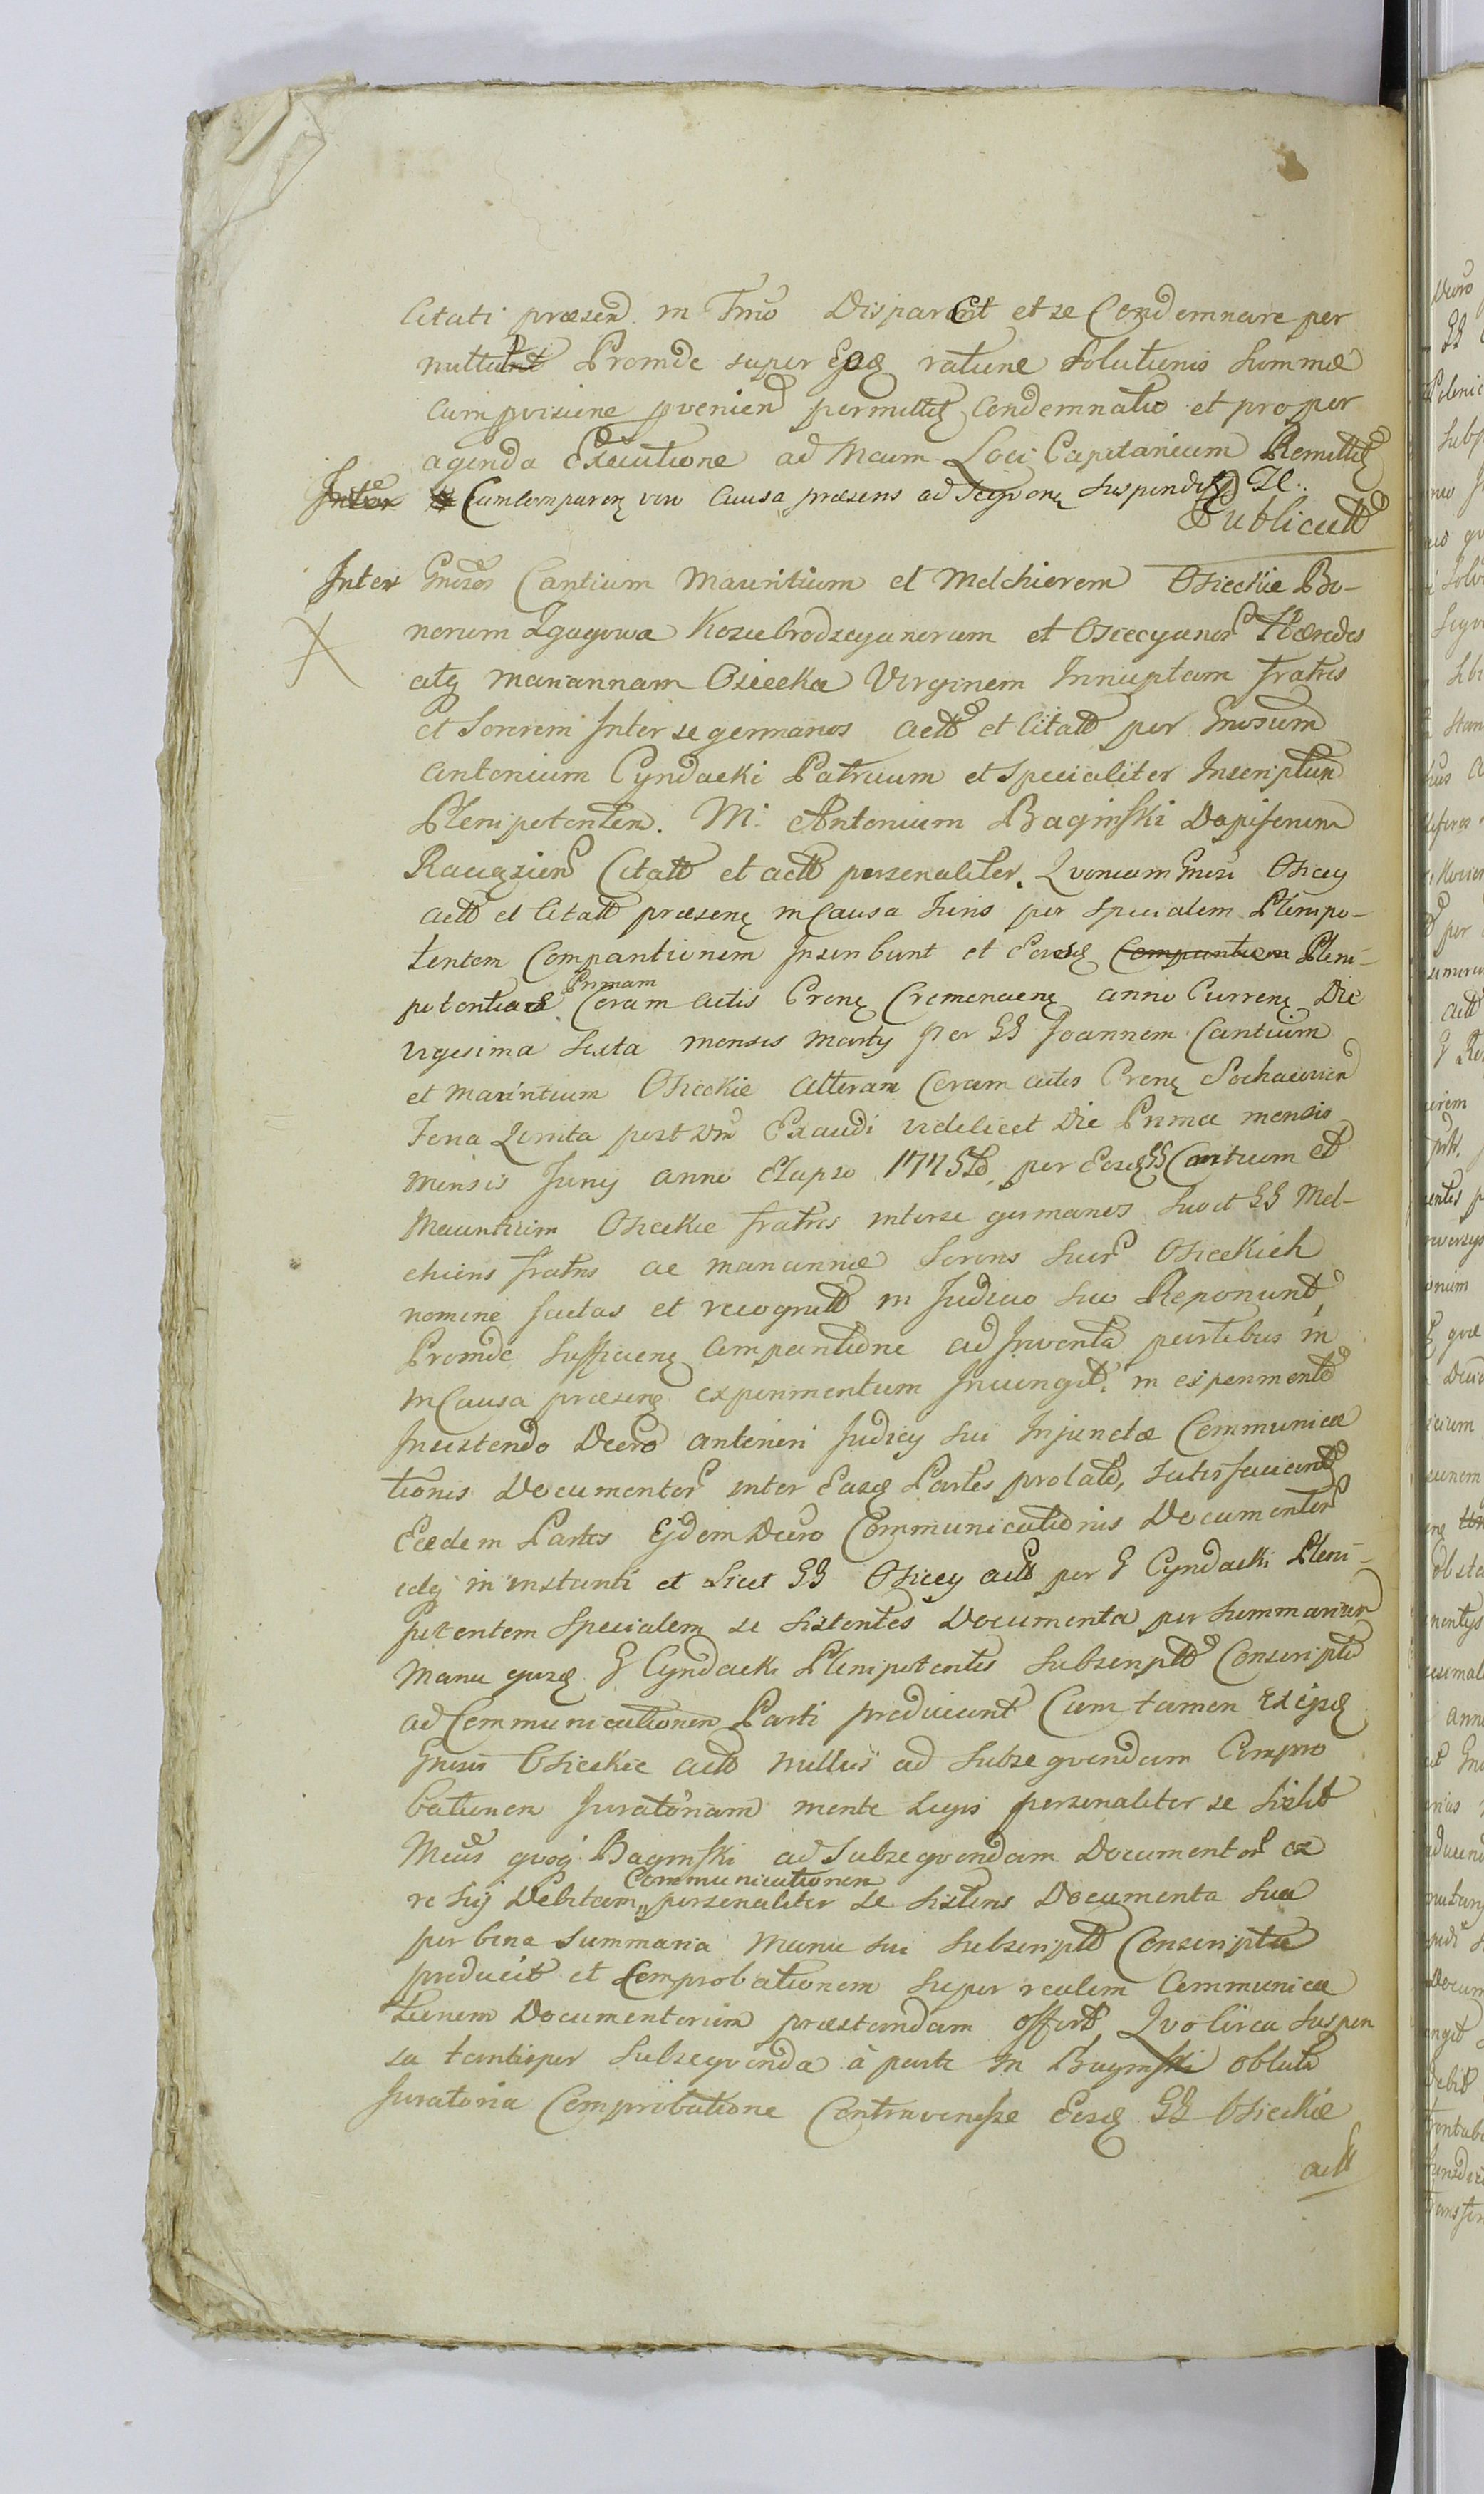 Citati præsen in Tmo Disparent et se Condemnare per
mittunt Proinde super Eosq ratione Solutionis Summæ
Comprisione provenien permittitq Condemnatio et pro per
agenda Executione ad Mcum Loci Capitaneum Remittitq
Inter Cum Comparenq vero Causa præsens ad Seqvonq Suspenditq
Publicatt
Inter Gnrosos Cantium Mauritium et Melchiorem Osieckie Bo-
norum Zgagowa Kozubrodzcyanorum et Osiecyanor Hæredes
atq Mariannam Osiecka Virginem Innuptam fratres
et Sororem Inter se germanos Actt et Citatt per Gnosum
Antonium Cyndacki Patruum et Specialiter Inscriptum
Plenipotentem. M. Antonium Baginski Dapiferum
Raciązien Citatt et actt personaliter. Qvoniam Gnrosi Osiecy
actt et Citatt præsenq in Causa Juris per Specialem Plenipo-
tentem Comparitionem Inscribunt et Eorusq Comparitionem Pleni-
potentiare Primam Coram Actis Crenq Cremenaenq anno Currenq Die
vigesima Sexta mensis Marty per GG Joannem Cantium
et Maurintium Osieckie Alteram Coram actis Crenq Sochaczevien
Feria Qvinta post Dm Exaudi videlicet Die Prima mensis
Mensis Juny anno Elapso 1775to per Eosq GG Cantium et
Mauritium Osieckie fratres inter se germanos Suo et GG Mel-
chioris fratris ac Mariannæ Sororis Suar Osieckich
nomine factas et recognitt in Judicio Suo Reponunt,
Proinde Sufficienq Comparitione ad Inventa partibus in
in Causa præsenq experimentum Injungit. in experimento
Insistendo Decro anteriori Judicy Sui Injunctæ Communica
tionis Documentor inter Easq Partes prolato, Satisfaciendo
Eædem Partes Ejdem Decro Communicationis Documentor
idq in instanti et Licet GG Osiecy actt per G Cyndacki Pleni-
potentem Specialem se Sistentes Documenta per Summarium
Manu ejusq G Cyndacki Plenipotentis Subscriptt Conscripto
ad Communicationem Parti producunt Cum tamen Ex ijsq
Gnrosis Osieckie actt nullus ad Subseqvendam Compro
bationem Juratoriam mente Legis personaliter se Sistit
Mcus qvoq Baginski ad Subseqvendam Documentor ex
re Sij Debitam Communicationem personaliter se Sistens Documenta Sua
per bina Summaria Manu sui Subscriptt Conscripta
producit et Comprobationem Super realem Communica
tionem Documentorum præstandam offert, Qvo circa Suspen
sa tantisper Subseqvenda à parte M Baginski oblata
Juratoria Comprobatione Contravenisse Eosq GG Osieckie
actt